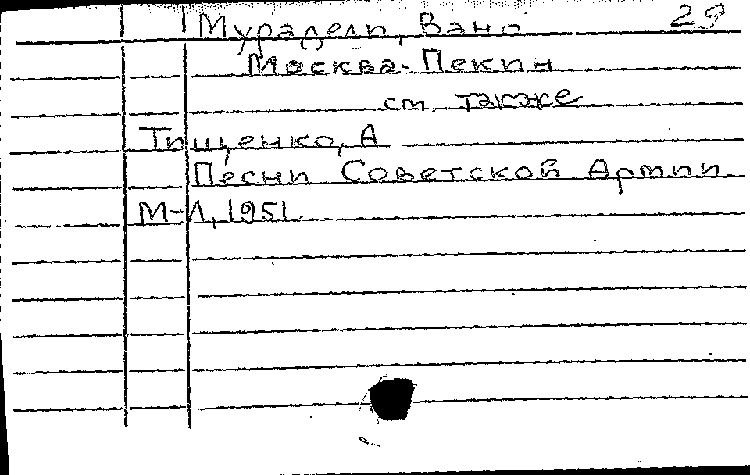 Мурадели, Вано 29
Москва-Пекин
см. также
Тищенко, А
Песни Советской Армии
М-Л, 1951